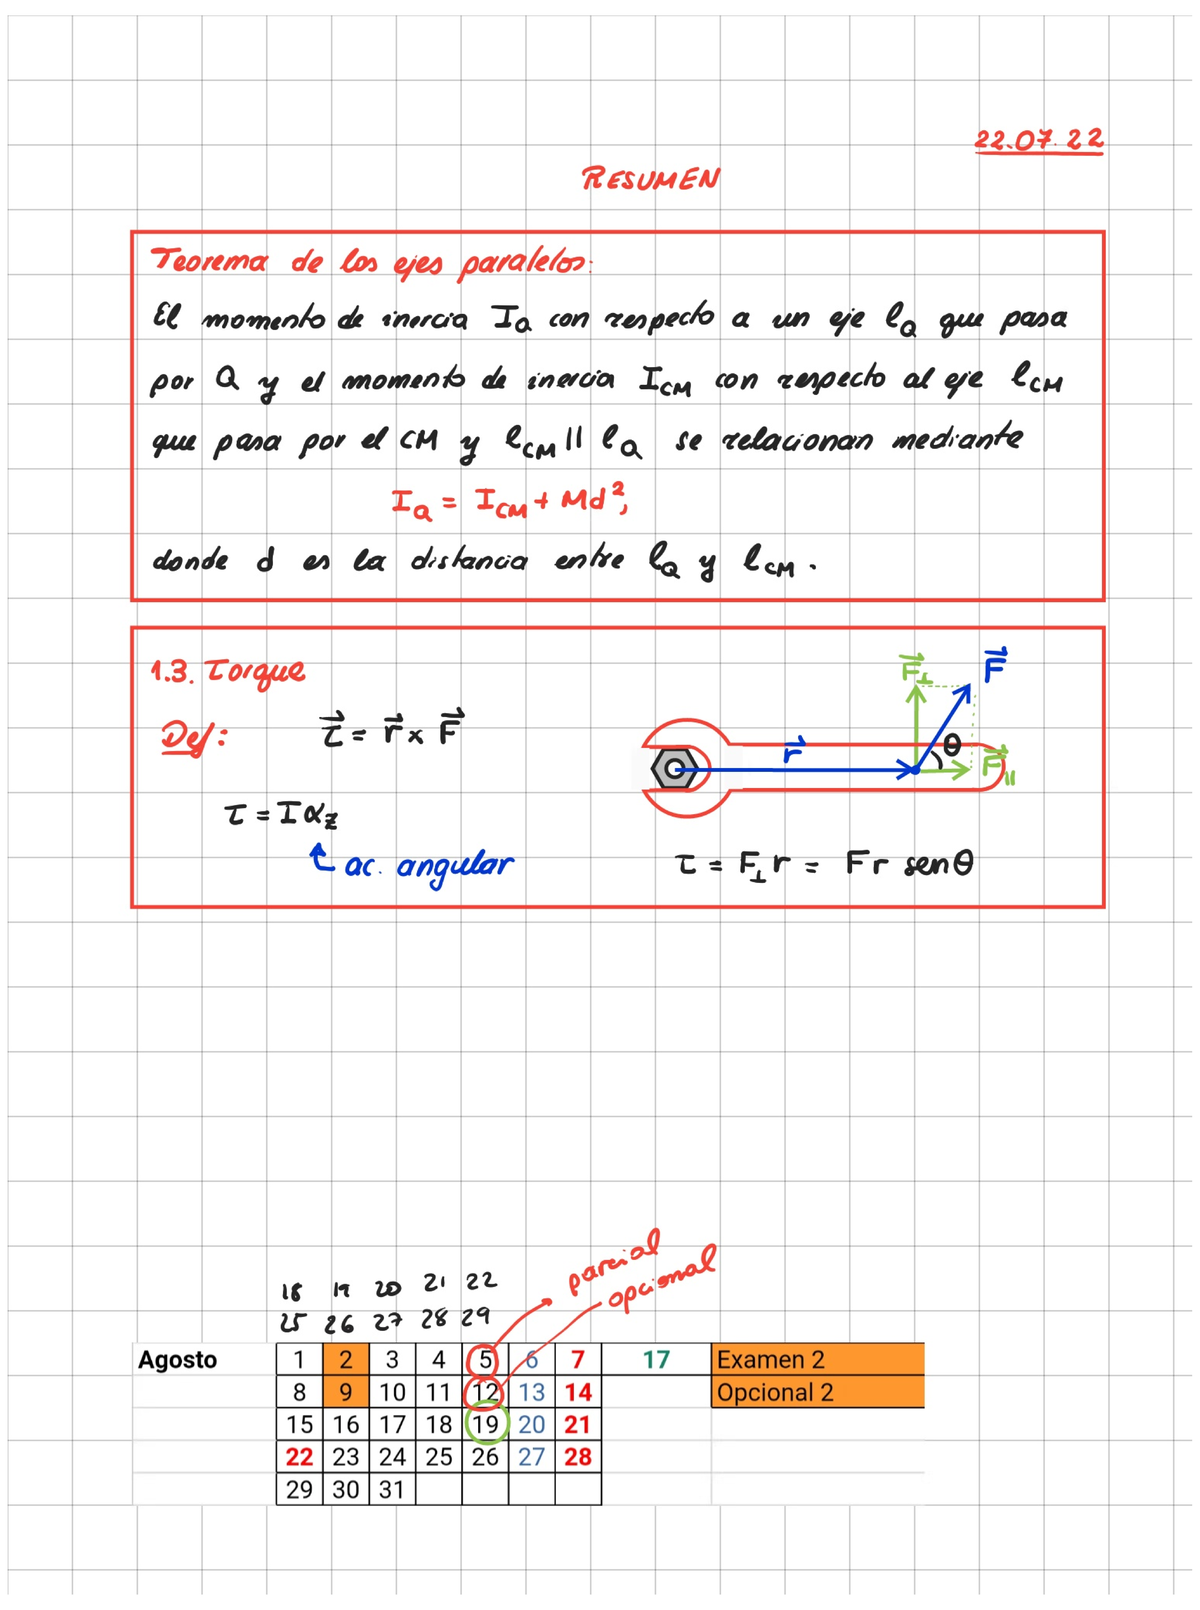 22.07.22
RESUMEN
Teorema de los ejes paralelos:
El momento de inercia I_Q con respecto a un eje l_Q que pasa
por Q y el momento de inercia I_CM con respecto al eje l_CM
que pasa por el CM y l_CM || l_Q se relacionan mediante
I_Q = I_CM + Md²,
donde d es la distancia entre l_Q y l_CM.
1.3. Torque
Def: τ⃗ = r⃗ × F⃗
F⃗⊥ F⃗
r⃗ θ F⃗||
τ = Iα_z
ac. angular
τ = F⊥ r = Fr senθ
parcial
opcional
18 19 20 21 22
25 26 27 28 29
Agosto 1 2 3 4 5 6 7 17 Examen 2
8 9 10 11 12 13 14 Opcional 2
15 16 17 18 19 20 21
22 23 24 25 26 27 28
29 30 31